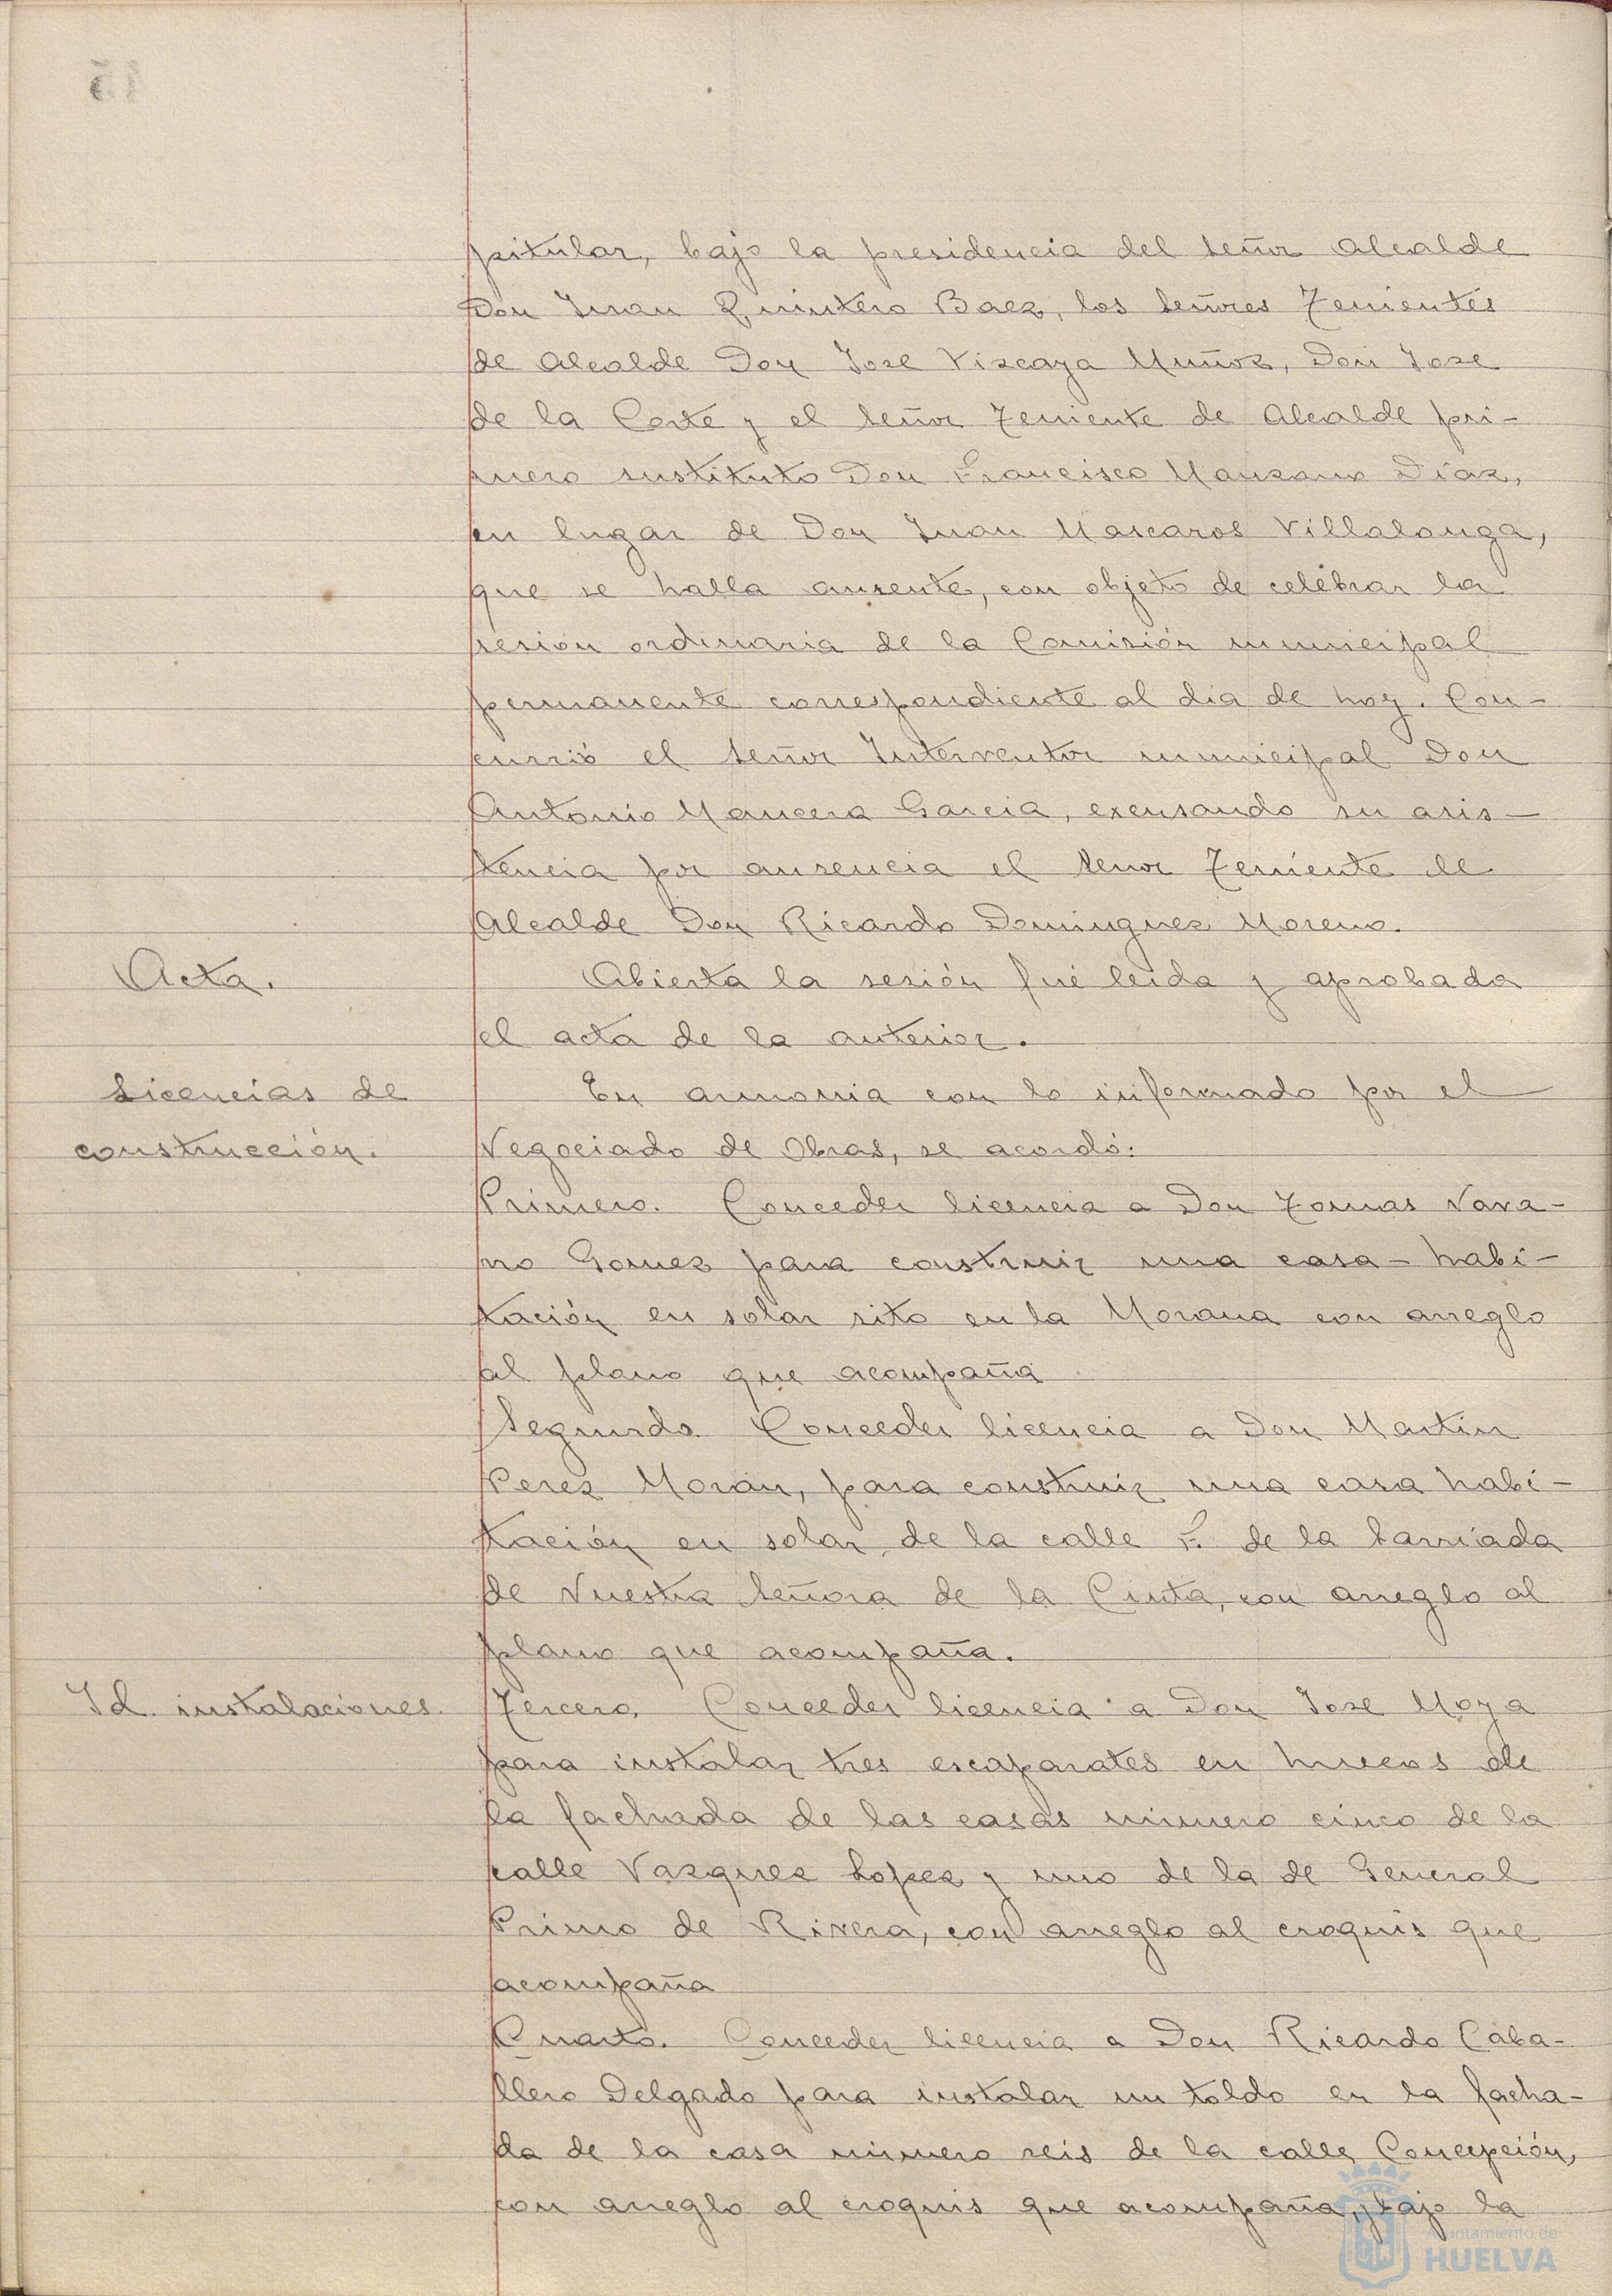 pitular, bajo la presidencia del señor Alcalde
Don Juan Quintero Baez, los señores Tenientes
de Alcalde Don Jose Viscaya Muñoz, Don Jose
de la Corte y el señor Teniente de Alcalde pri-
mero sustituto Don Francisco Manzano Díaz,
en lugar de Don Juan Mascaros Villalonga,
que se halla ausente, con objeto de celebrar la
sesion ordinaria de la Comisión municipal
permanente correspondiente al dia de hoy. Con-
currió el señor Interventor municipal Don
Antonio Mancera Garcia, excusando su asis-
tencia por ausencia el senor Teniente de
Alcalde Don Ricardo Dominguez Moreno.
Acta.
Abierta la sesión fué leida y aprobada
el acta de la anterior.
Licencias de
construcción.
En armonia con lo informado por el
Negociado de Obras, se acordó:
Primero. Conceder licencia a Don Tomas Nava-
rro Gomez para construir una casa-habi-
tación en solar sito en la Morana con arreglo
al plano que acompaña
Segundo. Conceder licencia a Don Martin
Perez Moran, para construir una casa habi-
tación en solar de la calle F. de la barriada
de Nuestra Señora de la Cinta, con arreglo al
plano que acompaña.
Id. instalaciones.
Tercero. Conceder licencia a Don Jose Moya
para instalar tres escaparates en huecos de
la fachada de las casas número cinco de la
calle Vazquez Lopez y uno de la de General
Primo de Rivera, con arreglo al croquis que
acompaña
Cuarto. Conceder licencia a Don Ricardo Caba-
llero Delgado para instalar un toldo en la facha-
da de la casa número seis de la calle Concepción,
con arreglo al croquis que acompaña, bajo la
Ayuntamiento de
HUELVA